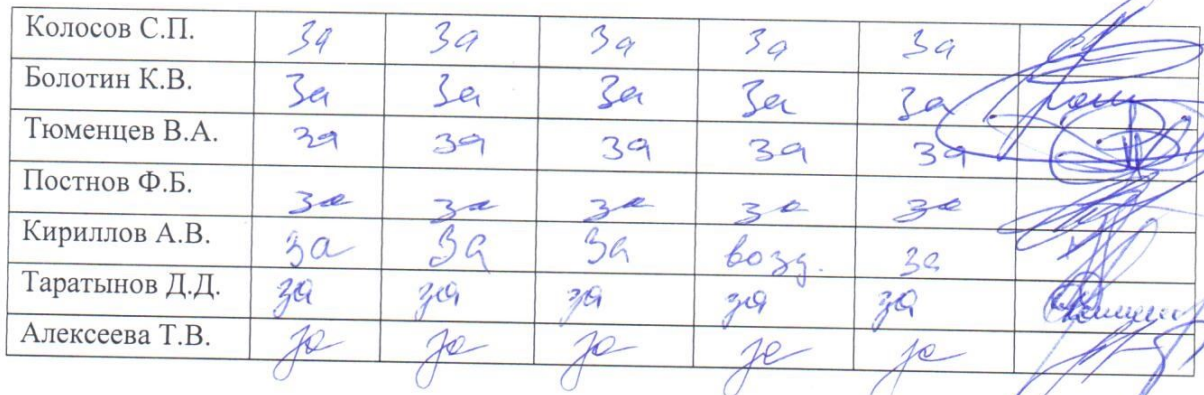 Колосов С.П. За За За За За
Болотин К.В. За За За За За
Тюменцев В.А. за за за за за
Постнов Ф.Б. за за за за за
Кириллов А.В. за За За возд. за
Таратынов Д.Д. за за за за за
Алексеева Т.В. за за за за за